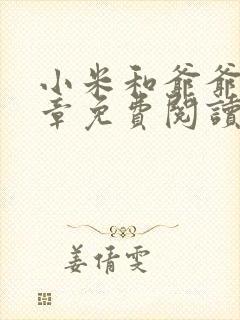 小米和爺爺
章免費閱讀
姜倩雯